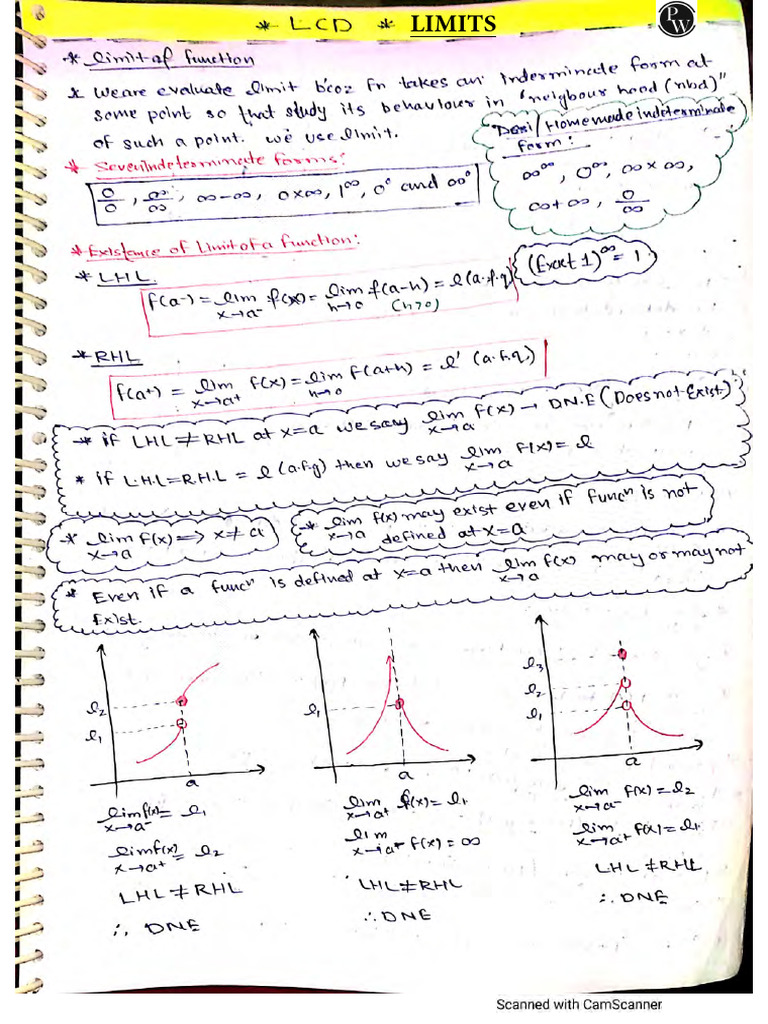 * LCD * LIMITS
PW
* limit of function
* We are evaluate limit b'coz Fn takes an Inderminate form at
some point so that study its behaviour in "neigbour hood (nbd)"
of such a point. we use limit.
Desi/Homemade indeterminate
form:
∞^∞, 0^∞, ∞×∞,
∞+∞, 0/∞
* Seven indeterminate forms:
0/0, ∞/∞, ∞-∞, 0×∞, 1^∞, 0° and ∞°
* Existance of Limit of a function:
* LHL
f(a-) = lim x→a- f(x) = lim h→0 f(a-h) = l (a.f.q) (h>0)
(Exact 1)^∞ = 1
* RHL
f(a+) = lim x→a+ f(x) = lim h→0 f(a+h) = l' (a.f.q.)
* if LHL ≠ RHL at x=a we say lim x→a f(x) → D.N.E (Does not Exist.)
* if L.H.L = R.H.L = l (a.f.q) then we say lim x→a f(x) = l
* lim x→a f(x) => x≠a
* lim x→a f(x) may exist even if funcn is not
defined at x=a
* Even if a funcn is defined at x=a then lim x→a f(x) may or may not
Exist.
l2
l1
a
l1
a
l3
l2
l1
a
lim x→a- f(x) = l1
lim x→a+ f(x) = l2
LHL ≠ RHL
∴ DNE
lim x→a+ f(x) = l1
lim x→a- f(x) = ∞
LHL ≠ RHL
∴ DNE
lim x→a- f(x) = l2
lim x→a+ f(x) = l1
LHL ≠ RHL
∴ DNE
Scanned with CamScanner